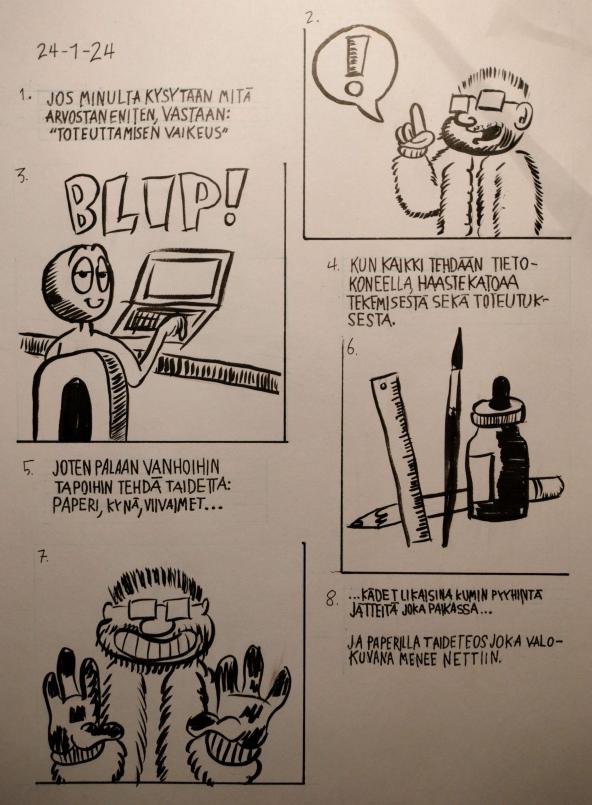 24-1-24
1. JOS MINULTA KYSYTÄÄN MITÄ
ARVOSTAN ENITEN, VASTAAN:
"TOTEUTTAMISEN VAIKEUS"
2.
!
3.
BLIP!
4. KUN KAIKKI TEHDÄÄN TIETO-
KONEELLA, HAASTE KATOAA
TEKEMISESTÄ SEKÄ TOTEUTUK-
SESTA.
5. JOTEN PALAAN VANHOIHIN
TAPOIHIN TEHDÄ TAIDETTA:
PAPERI, KYNÄ, VIIVAIMET...
6.
7.
8. ...KÄDET LIKAISINA KUMIN PYYHINTÄ
JÄTTEITÄ JOKA PAIKASSA...
JA PAPERILLA TAIDETEOS JOKA VALO-
KUVANA MENEE NETTIIN.